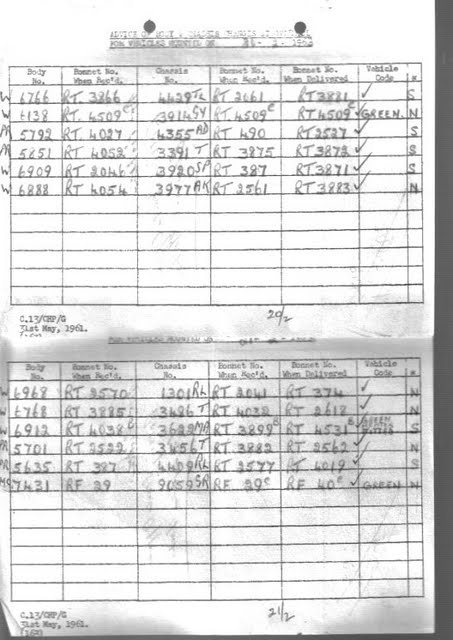 ADVICE OF BODY & CHASSIS
FOR VEHICLES MOUNTED ON 1962
Body No. Bonnet No. When Rec'd. Chassis No. Bonnet No. When Rec'd. Bonnet No. When Delivered Vehicle Code *
W 6766 RT. 3866 4429 RL RT 2061 RT 3881 ✓ S
W 6138 RT. 4509 C 3914 GY RT 4509 C RT 4509 C ✓ GREEN. N
PR 5792 RT. 4027 4355 AD RT 490 RT 2527 ✓ S
PR 5851 RT 4052 3391 T RT 3875 RT 3872 ✓ S
W 6909 RT 2046 3920 SP RT 387 RT 3871 ✓ S
W 6888 RT 4054 3977 AK RT 2561 RT 3883 ✓ N
C.13/CHP/G
31st May, 1961.
20/2
FOR VEHICLES MOUNTED ON
Body No. Bonnet No. When Rec'd. Chassis No. Bonnet No. When Rec'd. Bonnet No. When Delivered Vehicle Code *
W 6968 RT 2570 1301 RL RT 2041 RT 374 ✓ N
W 6768 RT 3885 3486 T RT 4032 RT 2618 ✓ N
W 6912 RT 4038 3622 RT 3899 B RT 4531 ✓ GREEN S
PR 5701 RT 2522 3456 T RT 3882 RT 2562 ✓ N
PR 5635 RT 387 4409 RL RT 2577 RT 4019 ✓ S
7431 RF 29 9059 SR RF 29 RF 40 ✓ GREEN N
C.13/CHP/G
31st May, 1961.
(162)
21/2